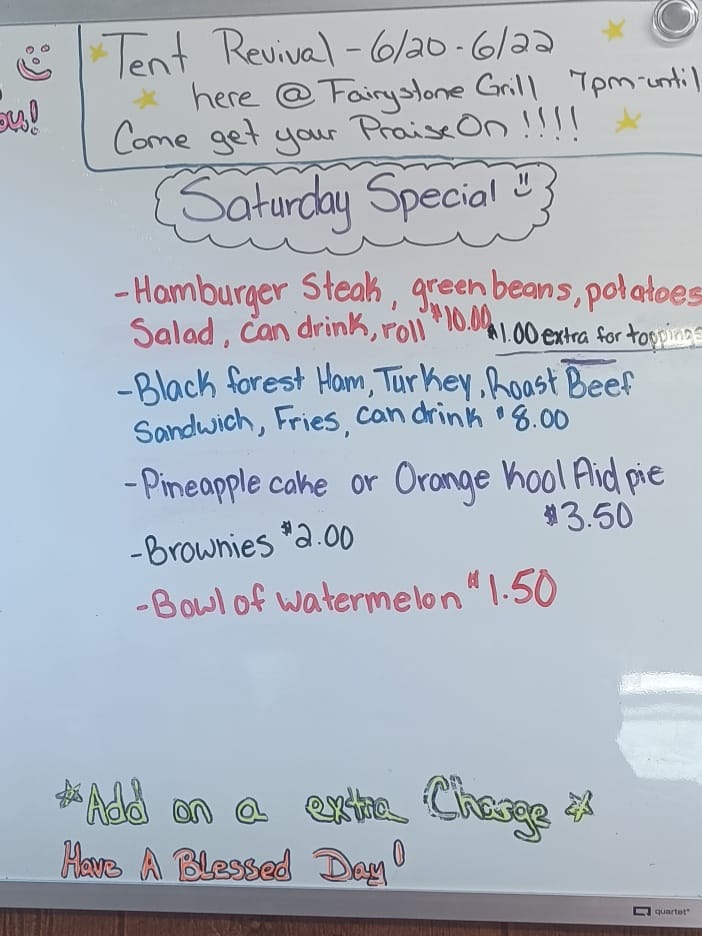 ou!
Tent Revival - 6/20 - 6/22
here @ Fairystone Grill 7pm-until
Come get your Praise On !!!!
Saturday Special
- Hamburger Steak, green beans, potatoes
Salad, can drink, roll $10.00 $1.00 extra for toppings
- Black forest Ham, Turkey, Roast Beef
Sandwich, Fries, can drink $8.00
- Pineapple cake or Orange Kool Aid pie
$3.50
- Brownies $2.00
- Bowl of watermelon $1.50
*Add on a extra Charge*
Have A Blessed Day!
quartet